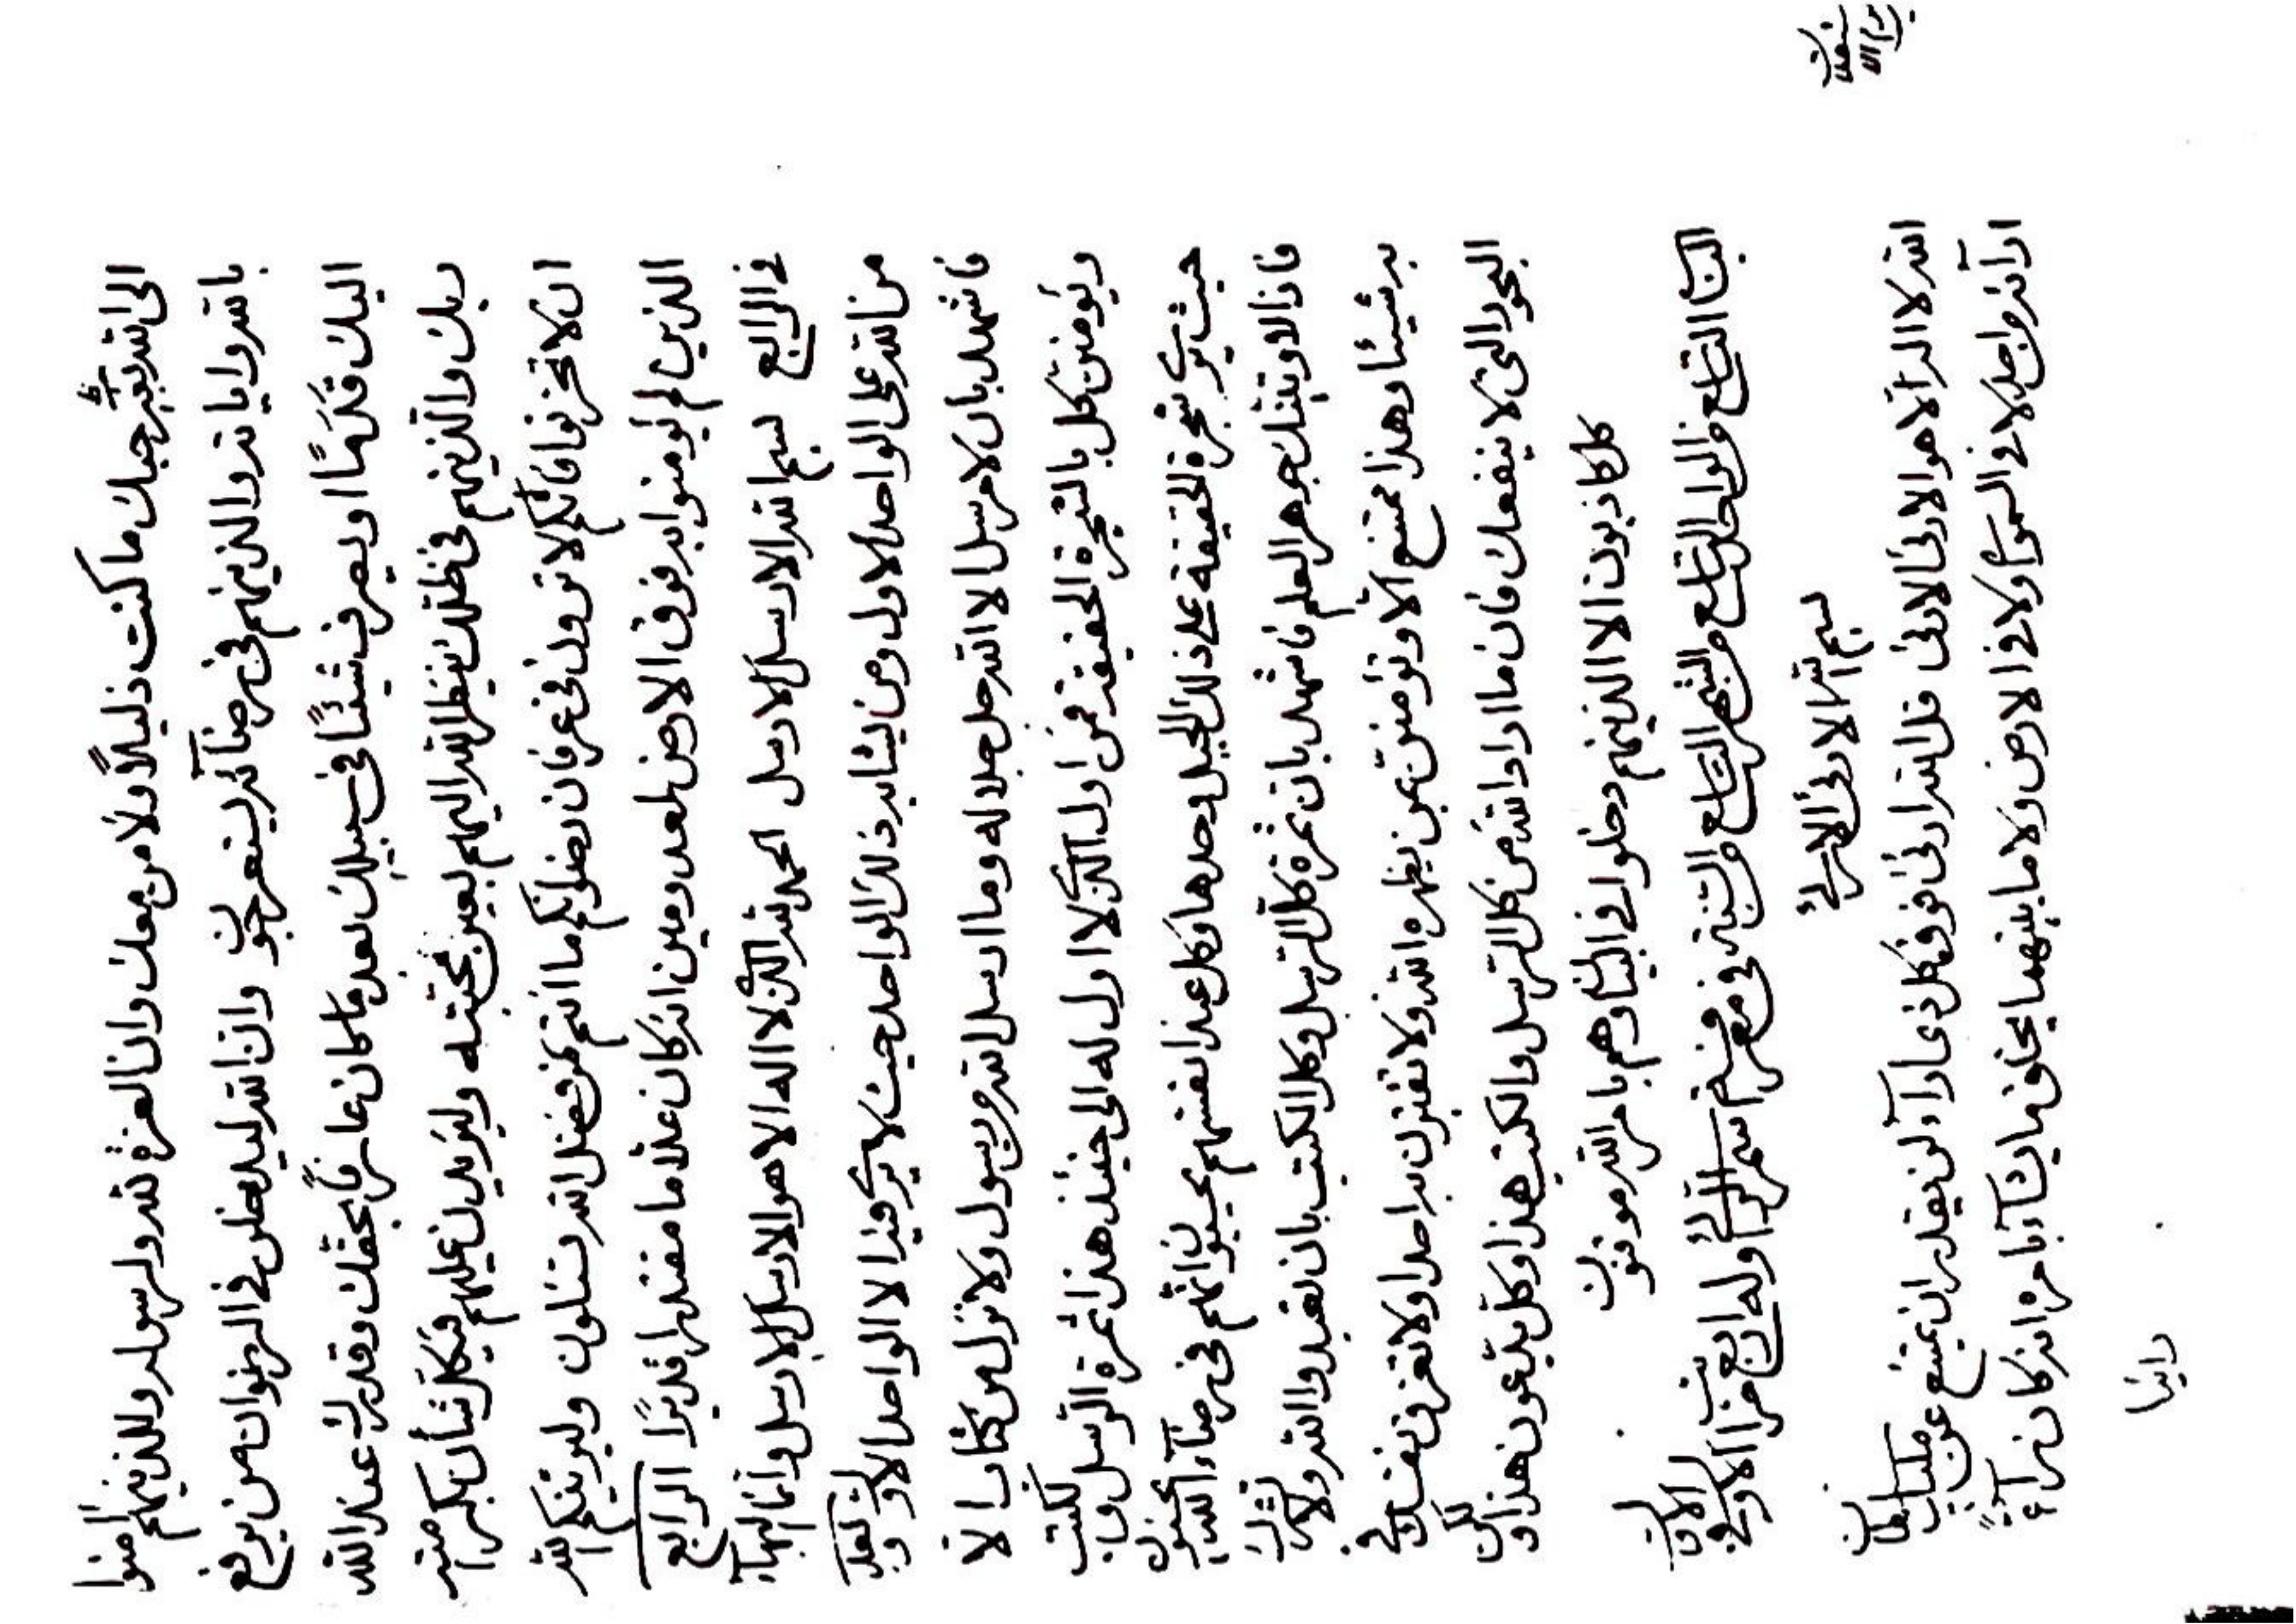 الی الله لتعبر حبك ما كنت ذليلاً ولا من معك وان العزة لله ولرسوله وللذينهم امنوا
بالله واياته والذينهم في رضآئه ليتعرجون وان الله ليدخلن في الرضوان من يرفع
اليك قدمًا او يصرف شيئًا في سبيلك بعد ما كان عارفًا بحقك وقدرك عند الله
ربك والذينهم في ظلك ينظر الله اليهم بعين محبته وليؤيدن عليهم فيكل شأن بكرامته
ان لا تحزنوا فانكم لا ترون في عرفان فضلا نكم ما انتم من فضل الله تسئلون وليرثينكم الله
الذين لم يومنوا به فوق الارض بعد ومين انه كان علاما مقتدرا قديرًا الرابع
في الرابع بسم الله الارسل الارسل الحمد لله الذي لا اله الا هو الارسل الارسل وانما البهآء
من الله علی الواحد الاول ومن يشابه ذلك الواحد حيث لا يری فيه الا الواحد الاول وبعد
فاشهد بان لا مرسل الا الله جل جلاله وما ارسل الله من رسول ولا نزل من كتاب الا
ويومنن كل بالشجرة الحقيقة فمن اول الذي لا اول له الی حينئذ هذا ثمرة الرسل والكتب
حيث يری شجرة الحقيقة علی ذلك الجبل وحدها وكل عند انفسهم يحسبون انهم في رضآء الله يسلكون
فاذا لاوتيتك جوهر العلم فاشهد بان ثمرة كل الرسل وكل الكتب بان تعبدوا الله ولا تشرك
به شيئا وهذا ممتنع الا وتؤمنن بمن يظهره الله ولا تقترن به احدا ولا تغرقن نفسك في
البحور التي لا ينفعك فان ما اراد الله من كل الرسل والكتب هذا وكل يدعون هذا ولكن
كل كاذبون الا الذينهم دخلوا في البيان وهم بامر الله موقنون
الباب التاسع في الواحد التاسع من الشهر التاسع من السنة في معرفة اسم الادنی وله اربع مراتب الاول في الاول
بسم الله الادنی الادنی
الله لا اله الا هو الادنی الادنی قل الله ادنی فوق كل ذی ادنآء لن يقدر ان يمتنع عن مليك سلطان
ادنآئه من احد لا في السموات ولا في الارض ولا ما بينهما يخلق ما يشآء بامره انه كان دنآءً
دانيا